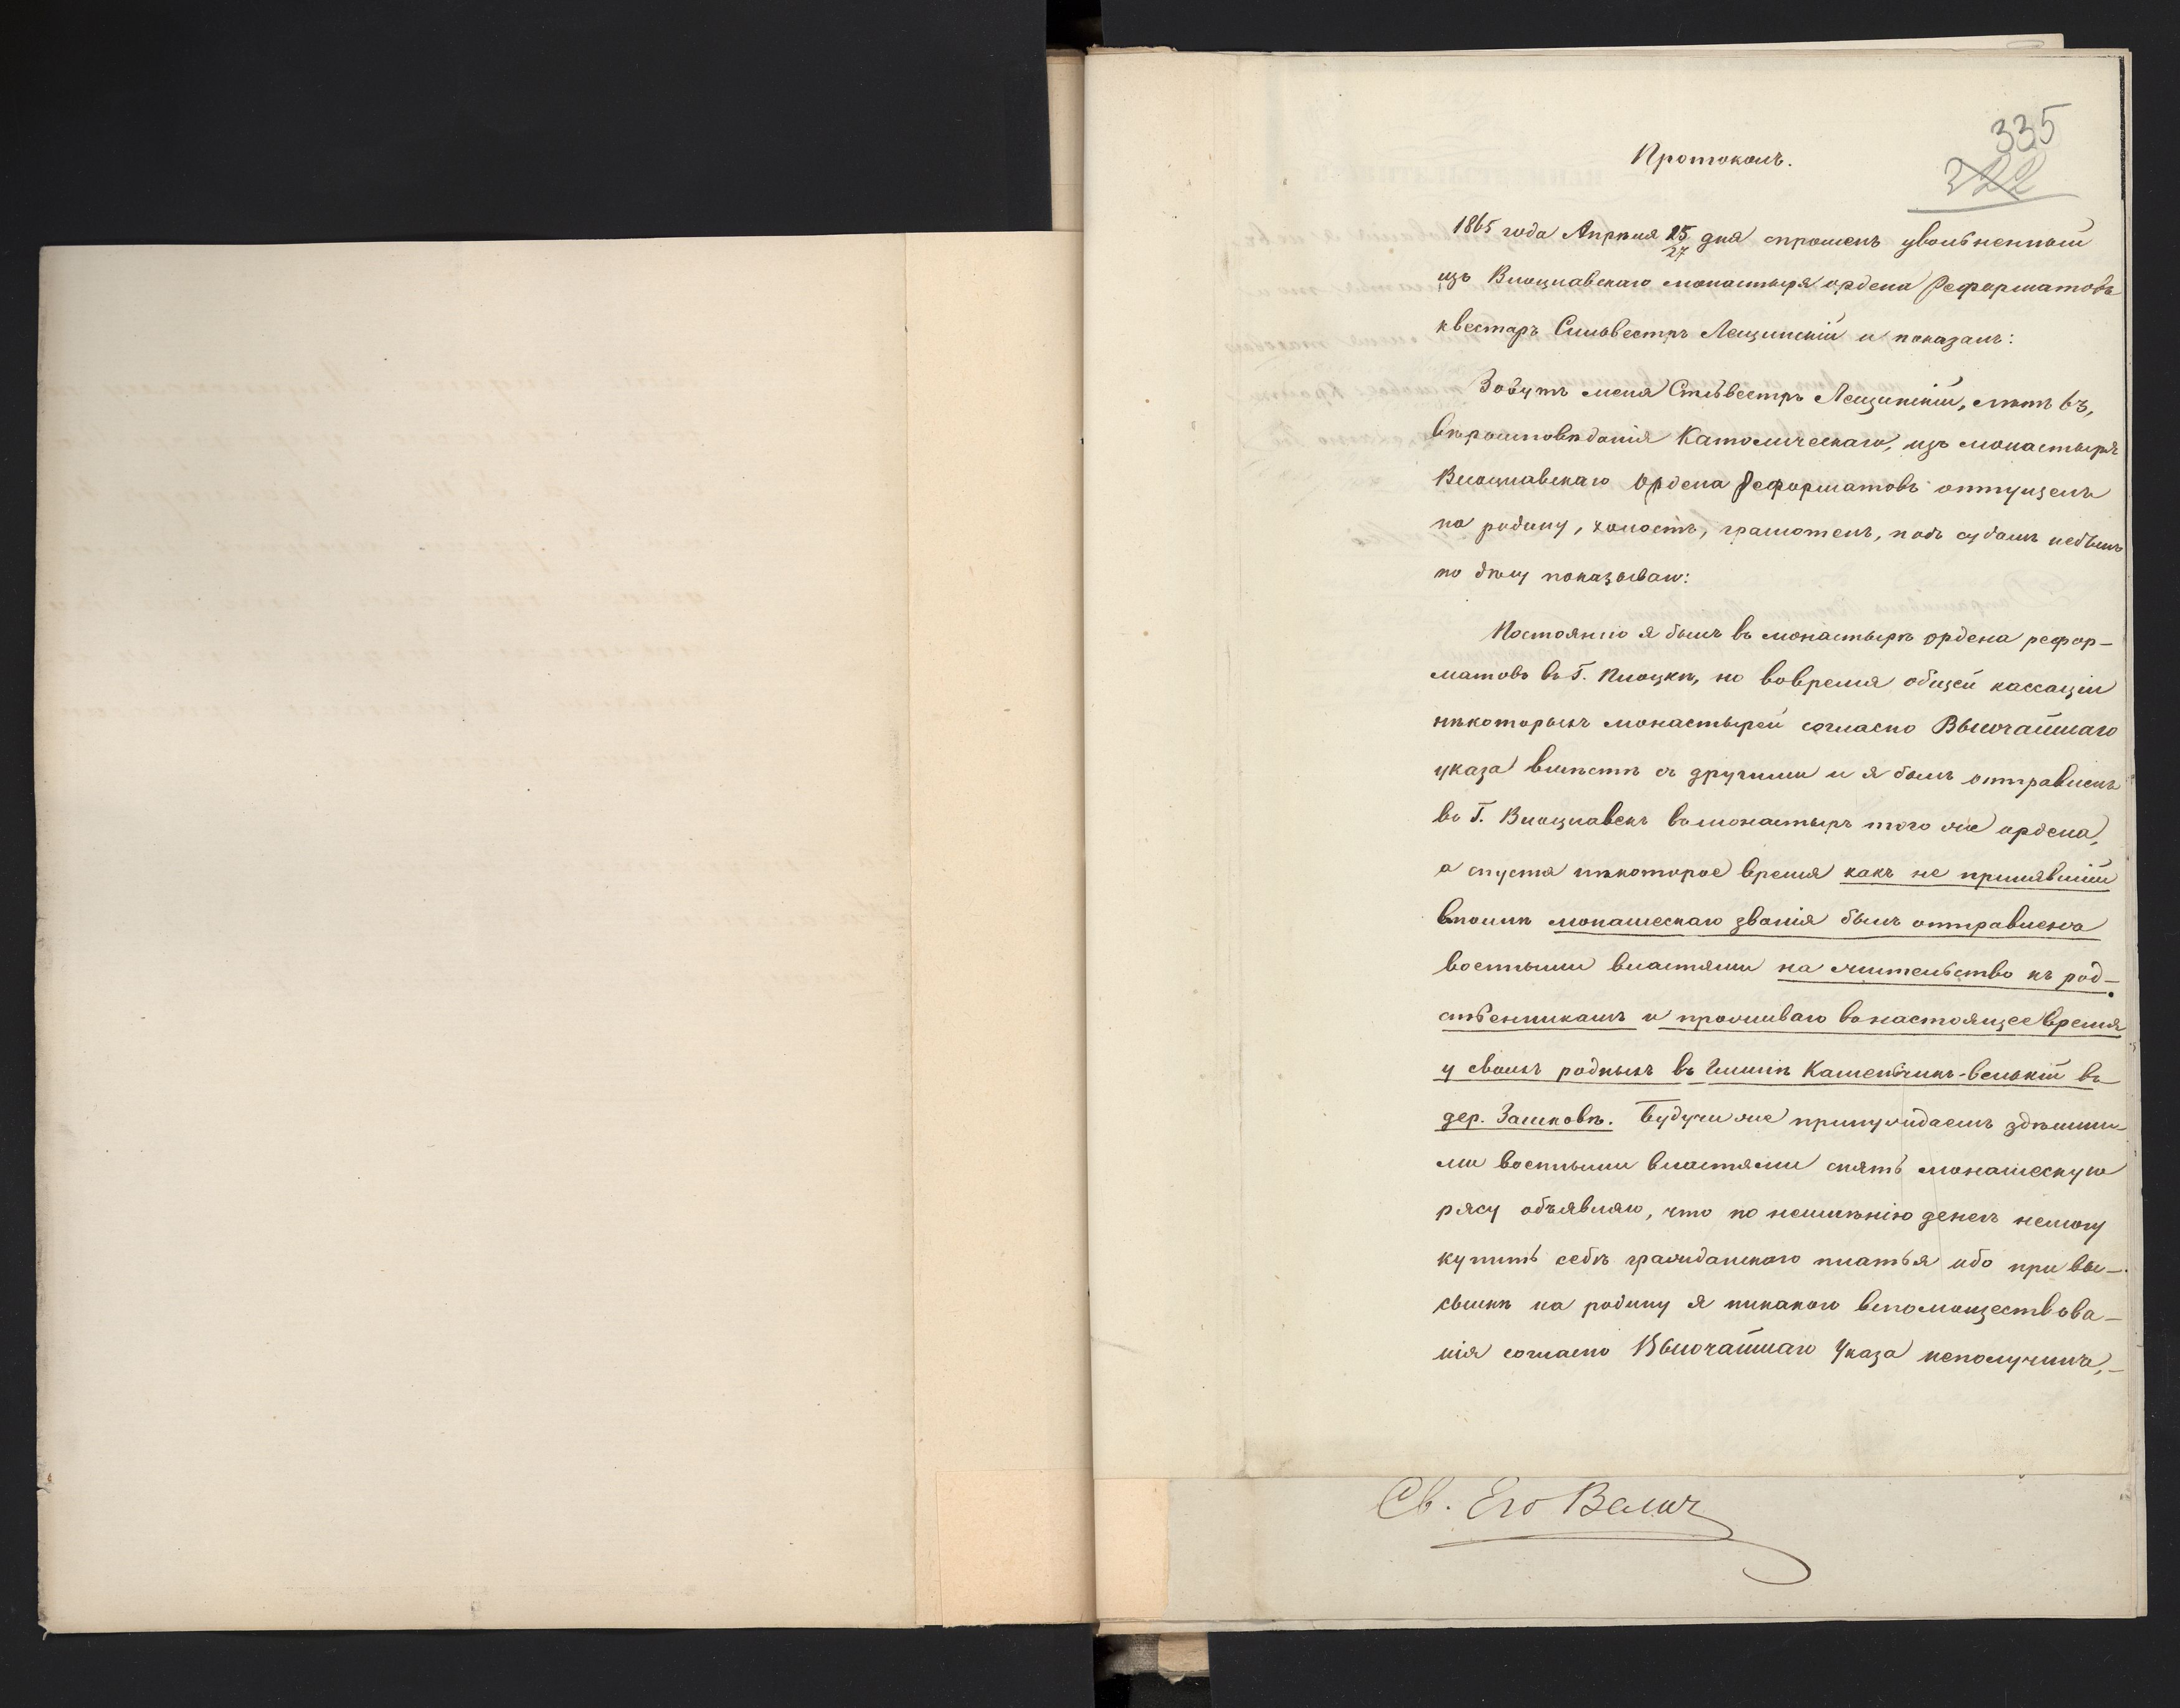 335
322
Протоколъ.
1865 года Апрѣля 15/27 дня спрошенъ увольненный
изъ Влоцлавскаго монастыря ордена Реформатовъ
квестарь Сильвестръ Лещинскій и показалъ:
Зовутъ меня Сильвестръ Лещинскій, лѣтъ 63,
вѣроисповѣданія Католическаго, изъ монастыря
Влоцлавскаго Ордена Реформатовъ отпущенъ
на родину, холостъ, грамотенъ, подъ судомъ небылъ
по дѣлу показываю:
Постоянно я былъ въ монастырѣ ордена рефор-
матовъ въ Г. Плоцкѣ, но вовремя общей кассаціи
нѣкоторыхъ монастырей согласно Высочайшаго
указа вмѣстѣ съ другими и я былъ отправленъ
въ Г. Влоцлавекъ вомонастырь того же ордена,
а спустя нѣкоторое время какъ не принявшій
вполнѣ монашескаго званія былъ отправленъ
военными властями на жительство къ род-
ственникамъ и проживаю въ настоящее время
у своихъ родныхъ въ Гминѣ Каменчикъ-велькій въ
дер. Зашковѣ. Будучи же принуждаемъ здѣшни-
ми военными властями снять монашескую
рясу объявляю, что по неимѣнію денегъ немогу
купить себѣ гражданскаго платья ибо при вы-
сылкѣ на родину я никакого вспомоществова-
нія согласно Высочайшаго Указа неполучилъ,-
Св. Его Велич